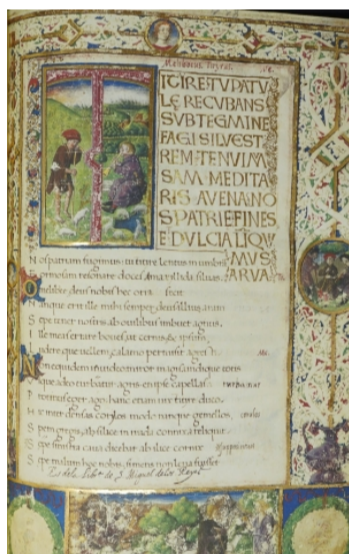 Melibeus Tityrus Me.
TITIRE TV PATV
LE RECVBANS
SVB TEGMINE
FAGI SILVEST
REM TENVI
SAM MEDITA
RIS AVENA NO
S PATRIE FINES
E DVLCIA LIQV
MVS
ARVA
Nos patriam fugimus tu titire lentus in umbra
Formosam resonare doces Amarillida silvas
O melibee deus nobis hec ocia fecit
Nanque erit ille mihi semper deus illius aram
Sepe tener nostris ab ovilibus imbuet agnus
Ille meas errare boves ut cernis & ipsum
Ludere que vellem calamo permisit agresti Me.
Non equidem invideo miror magis undique totis
Usque adeo turbatur agris en ipse capellas
Protinus eger ago hanc etiam vix titire duco
Hic inter densas corylos modo nanque gemellos
Spem gregis ah silice in nuda connixa reliquit
Sepe sinistra cava dicebat ab ilice cornix
Sepe malum hoc nobis si mens non leva fuisset
de S. Miguel de los Reyes